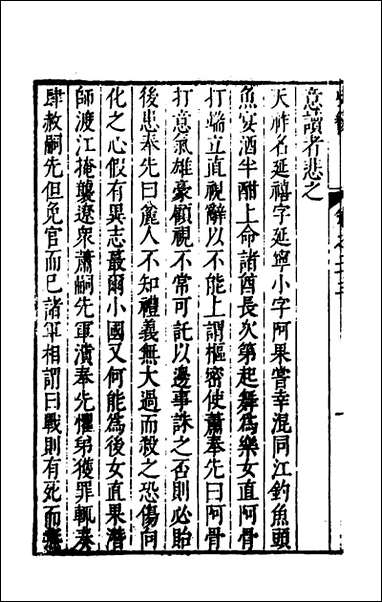 意讀者悲之
天祚名延禧字延寧小字阿果嘗幸混同江釣魚頭
魚宴酒半酣上命諸酋長次第起舞為樂女直阿骨
打端立直視辭以不能上謂樞密使蕭奉先曰阿骨
打意氣雄豪顧視不常可託以邊事誅之否則必貽
後患奉先曰麄人不知禮義無大過而殺之恐傷向
化之心假有異志蕞爾小國又何能為後女直果潛
師渡江掩襲遼衆蕭嗣先軍潰奉先懼弟獲罪輒奏
肆赦嗣先但免官而已諸軍相謂曰戰則有死而